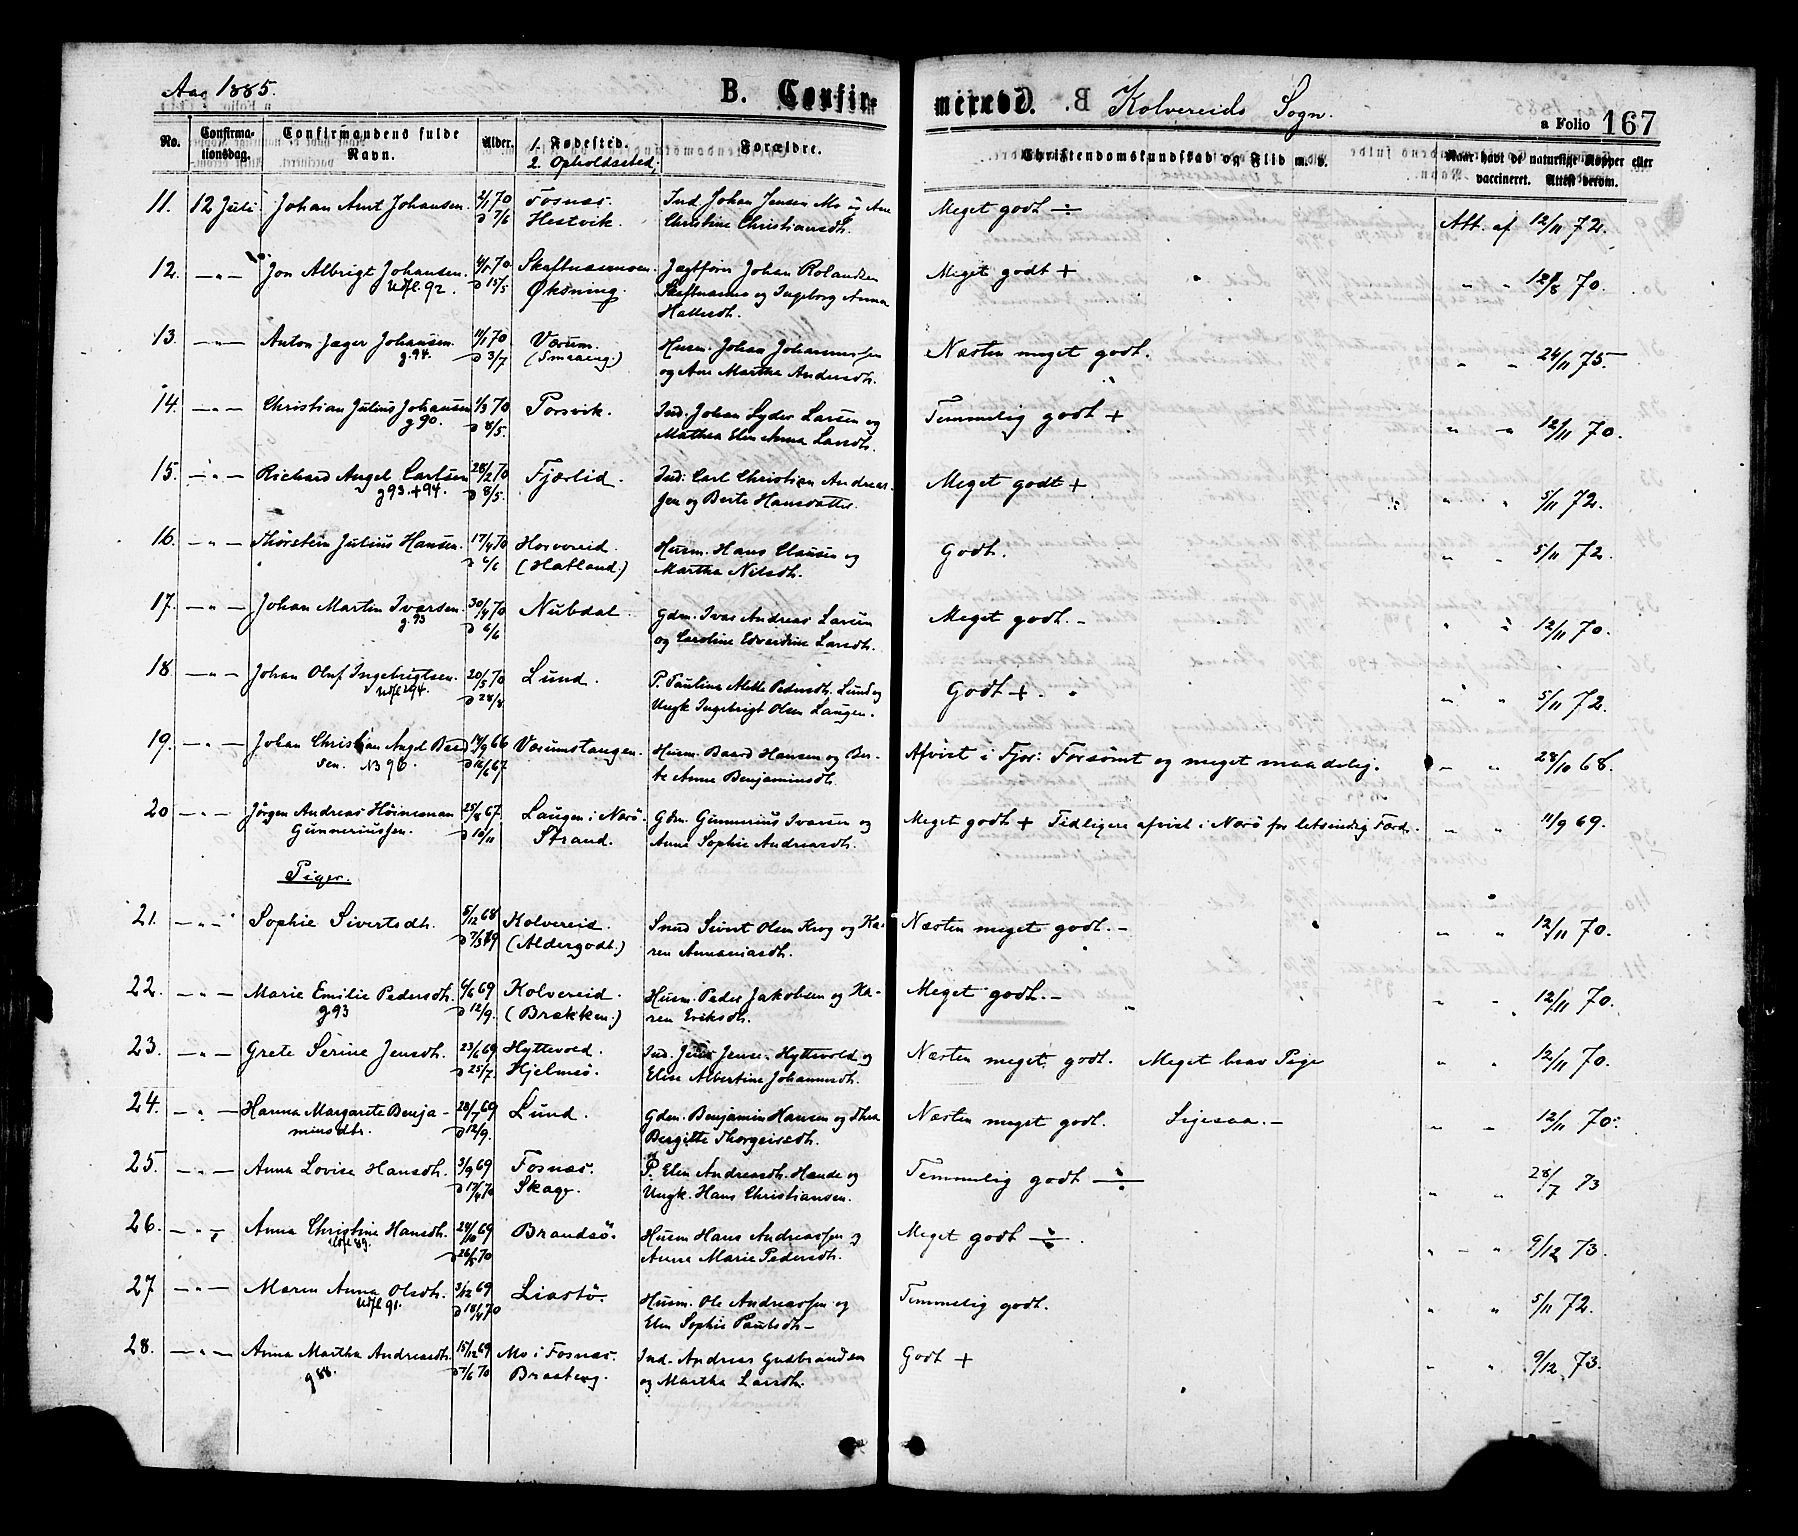 Aar 1885.
B. Confirmerede.
Kolvereids Sogn.
a Folio 167
No. Confirmationsdag. Confirmandens fulde Navn. Alder. 1. Fødested. 2. Opholdssted. Forældre. Christendomskundskab og Flid m. v. Naar havt de naturlige Kopper eller vaccineret. Attest derom.
11. 12 Juli Johan Arnt Johansen. 2/1 70 Fosnæs. Ind. Johan Jensen Mo og Ane Meget godt ÷ Att. af 12/11 72.
D 7/6 Hestvik. Christine Christiansdh.
12. — " — Jon Albrigt Johansen. 70 Skaftnæsmoen. Jægtfører Johan Rolandsen Meget godt + " " 12/8 70.
Udfl. 92. D 15/5 Øksning. Skaftnæsmo og Ingeborg Anna
Hallesdh.
13. — " — Anton Jæger Johansen. 11/1 70 Værum. Husm. Johan Johannessen Næsten meget godt. " " 24/11 75
g. 94. D 3/7 (Smaaeng.) og Ane Martha Andersdh.
14. — " — Christian Julius Johansen 1/3 70 Torsvik. Ind. Johan Lyder Larsen og Temmelig godt + " " 12/11 70.
g 90. D 8/5. Mathea Elen Anna Larsdh.
15. — " — Richard Angel Carlsen 28/2 70 Fjærlid. Ind. Carl Christian Andreas- Meget godt + " " 5/11 72.
g 93. + 94. D 8/5. sen og Berte Hansdatter.
16. — " — Thorstein Julius Hansen. 17/4 70 Horvereid. Husm. Hans Clausen og Godt. " " 5/11 72.
D 6/6 (Hatland.) Martha Nilsdh.
17. — " — Johan Martin Ivarsen. 30/4 70 Nubdal. Gdm. Ivar Andreas Larsen Meget godt. — " " 12/11 70.
g. 93 D 6/6 og Caroline Edvardine Larsdh.
18. — " — Johan Oluf Ingebrigtsen. 20/5 70 Lund. P. Pauline Mette Pedersdh. Lund og Godt + . " " 5/11 72.
Udfl. 94. D 28/8 Ungk Ingebrigt Olsen Laugen.
19. — " — Johan Christian Angel Baard 14/9 66 Værumstangen. Husm. Baard Hansen og Ber- Afvist i Fjor: Forsømt og meget maadelig. — " 28/10 68.
sen. NB 96. D 16/6 67. te Anne Benjaminsdh.
20 — " — Jørgen Andreas Høineman 25/8 67. Laugen i Nærø. Gdm. Gunnerius Ivarsen og Meget godt + Tidligere afvist i Nærø for letsindig Færd. " " 11/9 69.
Gunneriussen. D 10/11 Strand. Anne Sophie Andreasdh.
Piger.
21. — " — Sophie Sivertsdh. 5/12 68 Kolvereid. Sned Sivert Olsen Krog og Ka- Næsten meget godt. — " " 12/11 70.
D 7/3 69 (Aldergodt.) ren Annaniasdh.
22. — " — Marie Emilie Pedersdh. 6/6 69 Kolvereid. Husm. Peder Jakobsen og Ka- Meget godt. — " " 12/11 70.
g 93 D 12/9. (Brækken.) ren Eriksdh.
23. — " — Grete Serine Jensdh. 23/6 69 Hyttevold. Ind. Jens Jense. Hyttevold og Næsten meget godt. Meget brav Pige " " 12/11 70.
D 25/7. Hjelmsø. Elise Albertine Johannesdh.
24. — " — Hanna Margarete Benja- 28/7 69 Lund. Gdm. Benjamin Hansen og Thea Næsten meget godt. Ligesaa. — " " 12/11 70.
minsdtr. D 12/9. Bergitte Thorgeirsdh.
25. — " — Anna Lovise Hansdh. 3/9 69 Fosnæs. P. Elen Andreasdh. Hande og Temmelig godt ÷ " " 28/7 73
D 17/4 70 Skage. Ungk. Hans Christiansen.
26. — " — Anna Christine Hansdh. 24/10 69 Brandsø. Husm Hans Andreassen og Meget godt ÷ . " " 9/12 73.
Udfl 89. D 26/5 70 Anne Marie Pedersdh.
27 — " — Maren Anna Olsdh. 3/12 69 Liastø. Husm. Ole Andreassen og Temmelig godt. " " 5/11 72.
Udfl 91. D 18/4 70 Elen Sophie Paulsdh —
28. — " — Anna Martha Andreasdh. 15/12 69 Mo i Fosnæs. Ind. Andreas Gudbrandsen Godt + " " 9/12 73.
g 88. D 7/6 70 Braaberg. og Martha Larsdh.